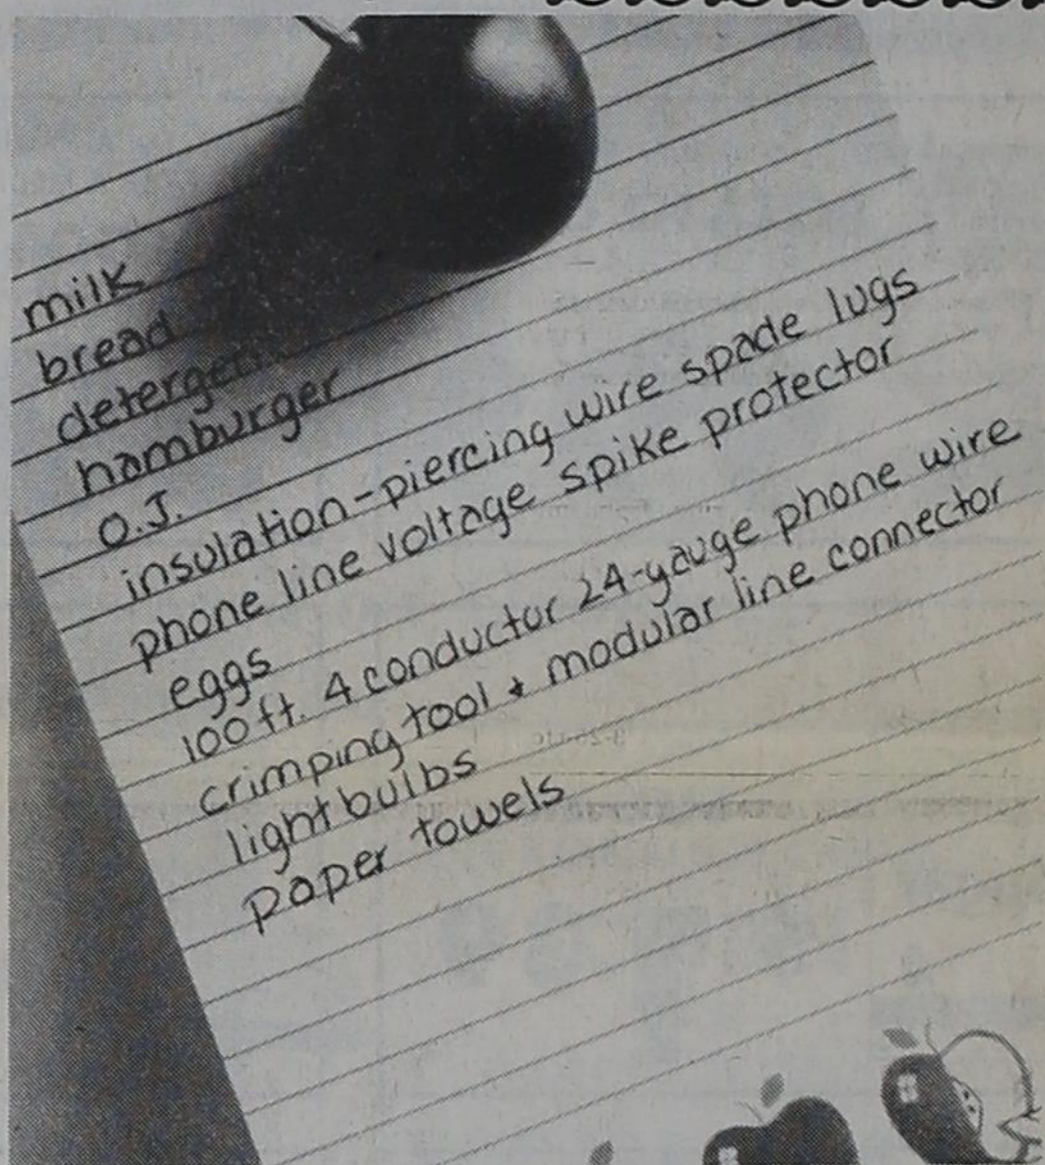 milk
bread
hamburger
O.J.
insulation-piercing wire spade lugs
phone line voltage spike protector
eggs
100 ft. 4 conductor 24-gauge phone wire
crimping tool & modular line connector
light bulbs
paper towels